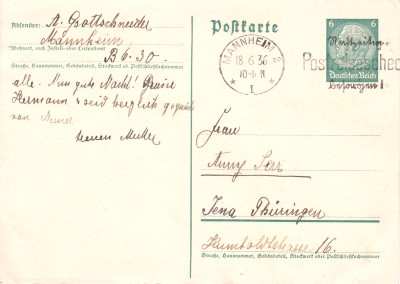 Absender: A. Gottschneider
Mannheim
Wohnort, auch Zustell- oder Leitpostamt
B 6. 30.
Straße, Hausnummer, Gebäudeteil, Stockwerk od. Postschließfachnummer
alle. Nun gute Nacht! Grüße
Hermann & seid herzlich gegrüßt
von Deiner
treuen Mutter
Postkarte
MANNHEIM 2
18.6.36
10-11
1
6 6
Deutsches Reich
Rechtzeitig
Postreisescheck
besorgen!
Frau
Anny
Jena Thüringen
Humboldtstrasse 16.
Straße, Hausnummer, Gebäudeteil, Stockwerk oder Postschließfachnummer